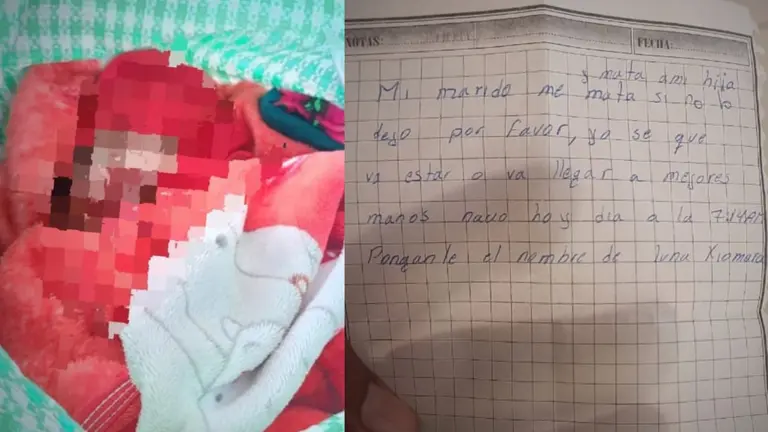 NOTAS:
FECHA:
y mata ami hija
Mi marido me mata si no lo
dejo por favor, yo se que
va estar o va llegar a mejores
manos nacio hoy dia a la 7:44AM
Ponganle el nombre de luna Xiomara